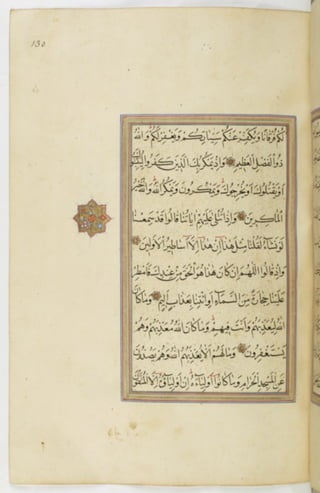 130
لَكُمْ فُرْقَانًا وَيُكَفِّرْ عَنْكُمْ سَيِّئَاتِكُمْ وَيَغْفِرْ لَكُمْ وَاللَّهُ
ذُو الْفَضْلِ الْعَظِيمِ وَإِذْ يَمْكُرُ بِكَ الَّذِينَ كَفَرُوا لِيُثْبِتُوكَ
أَوْ يَقْتُلُوكَ أَوْ يُخْرِجُوكَ وَيَمْكُرُونَ وَيَمْكُرُ اللَّهُ وَاللَّهُ خَيْرُ
الْمَاكِرِينَ وَإِذَا تُتْلَى عَلَيْهِمْ آيَاتُنَا قَالُوا قَدْ سَمِعْنَا
لَوْ نَشَاءُ لَقُلْنَا مِثْلَ هَذَا إِنْ هَذَا إِلَّا أَسَاطِيرُ الْأَوَّلِينَ
وَإِذْ قَالُوا اللَّهُمَّ إِنْ كَانَ هَذَا هُوَ الْحَقَّ مِنْ عِنْدِكَ فَأَمْطِرْ
عَلَيْنَا حِجَارَةً مِنَ السَّمَاءِ أَوِ ائْتِنَا بِعَذَابٍ أَلِيمٍ وَمَا كَانَ
اللَّهُ لِيُعَذِّبَهُمْ وَأَنْتَ فِيهِمْ وَمَا كَانَ اللَّهُ مُعَذِّبَهُمْ وَهُمْ
يَسْتَغْفِرُونَ وَمَا لَهُمْ أَلَّا يُعَذِّبَهُمُ اللَّهُ وَهُمْ يَصُدُّونَ
عَنِ الْمَسْجِدِ الْحَرَامِ وَمَا كَانُوا أَوْلِيَاءَهُ إِنْ أَوْلِيَاؤُهُ إِلَّا الْمُتَّقُونَ